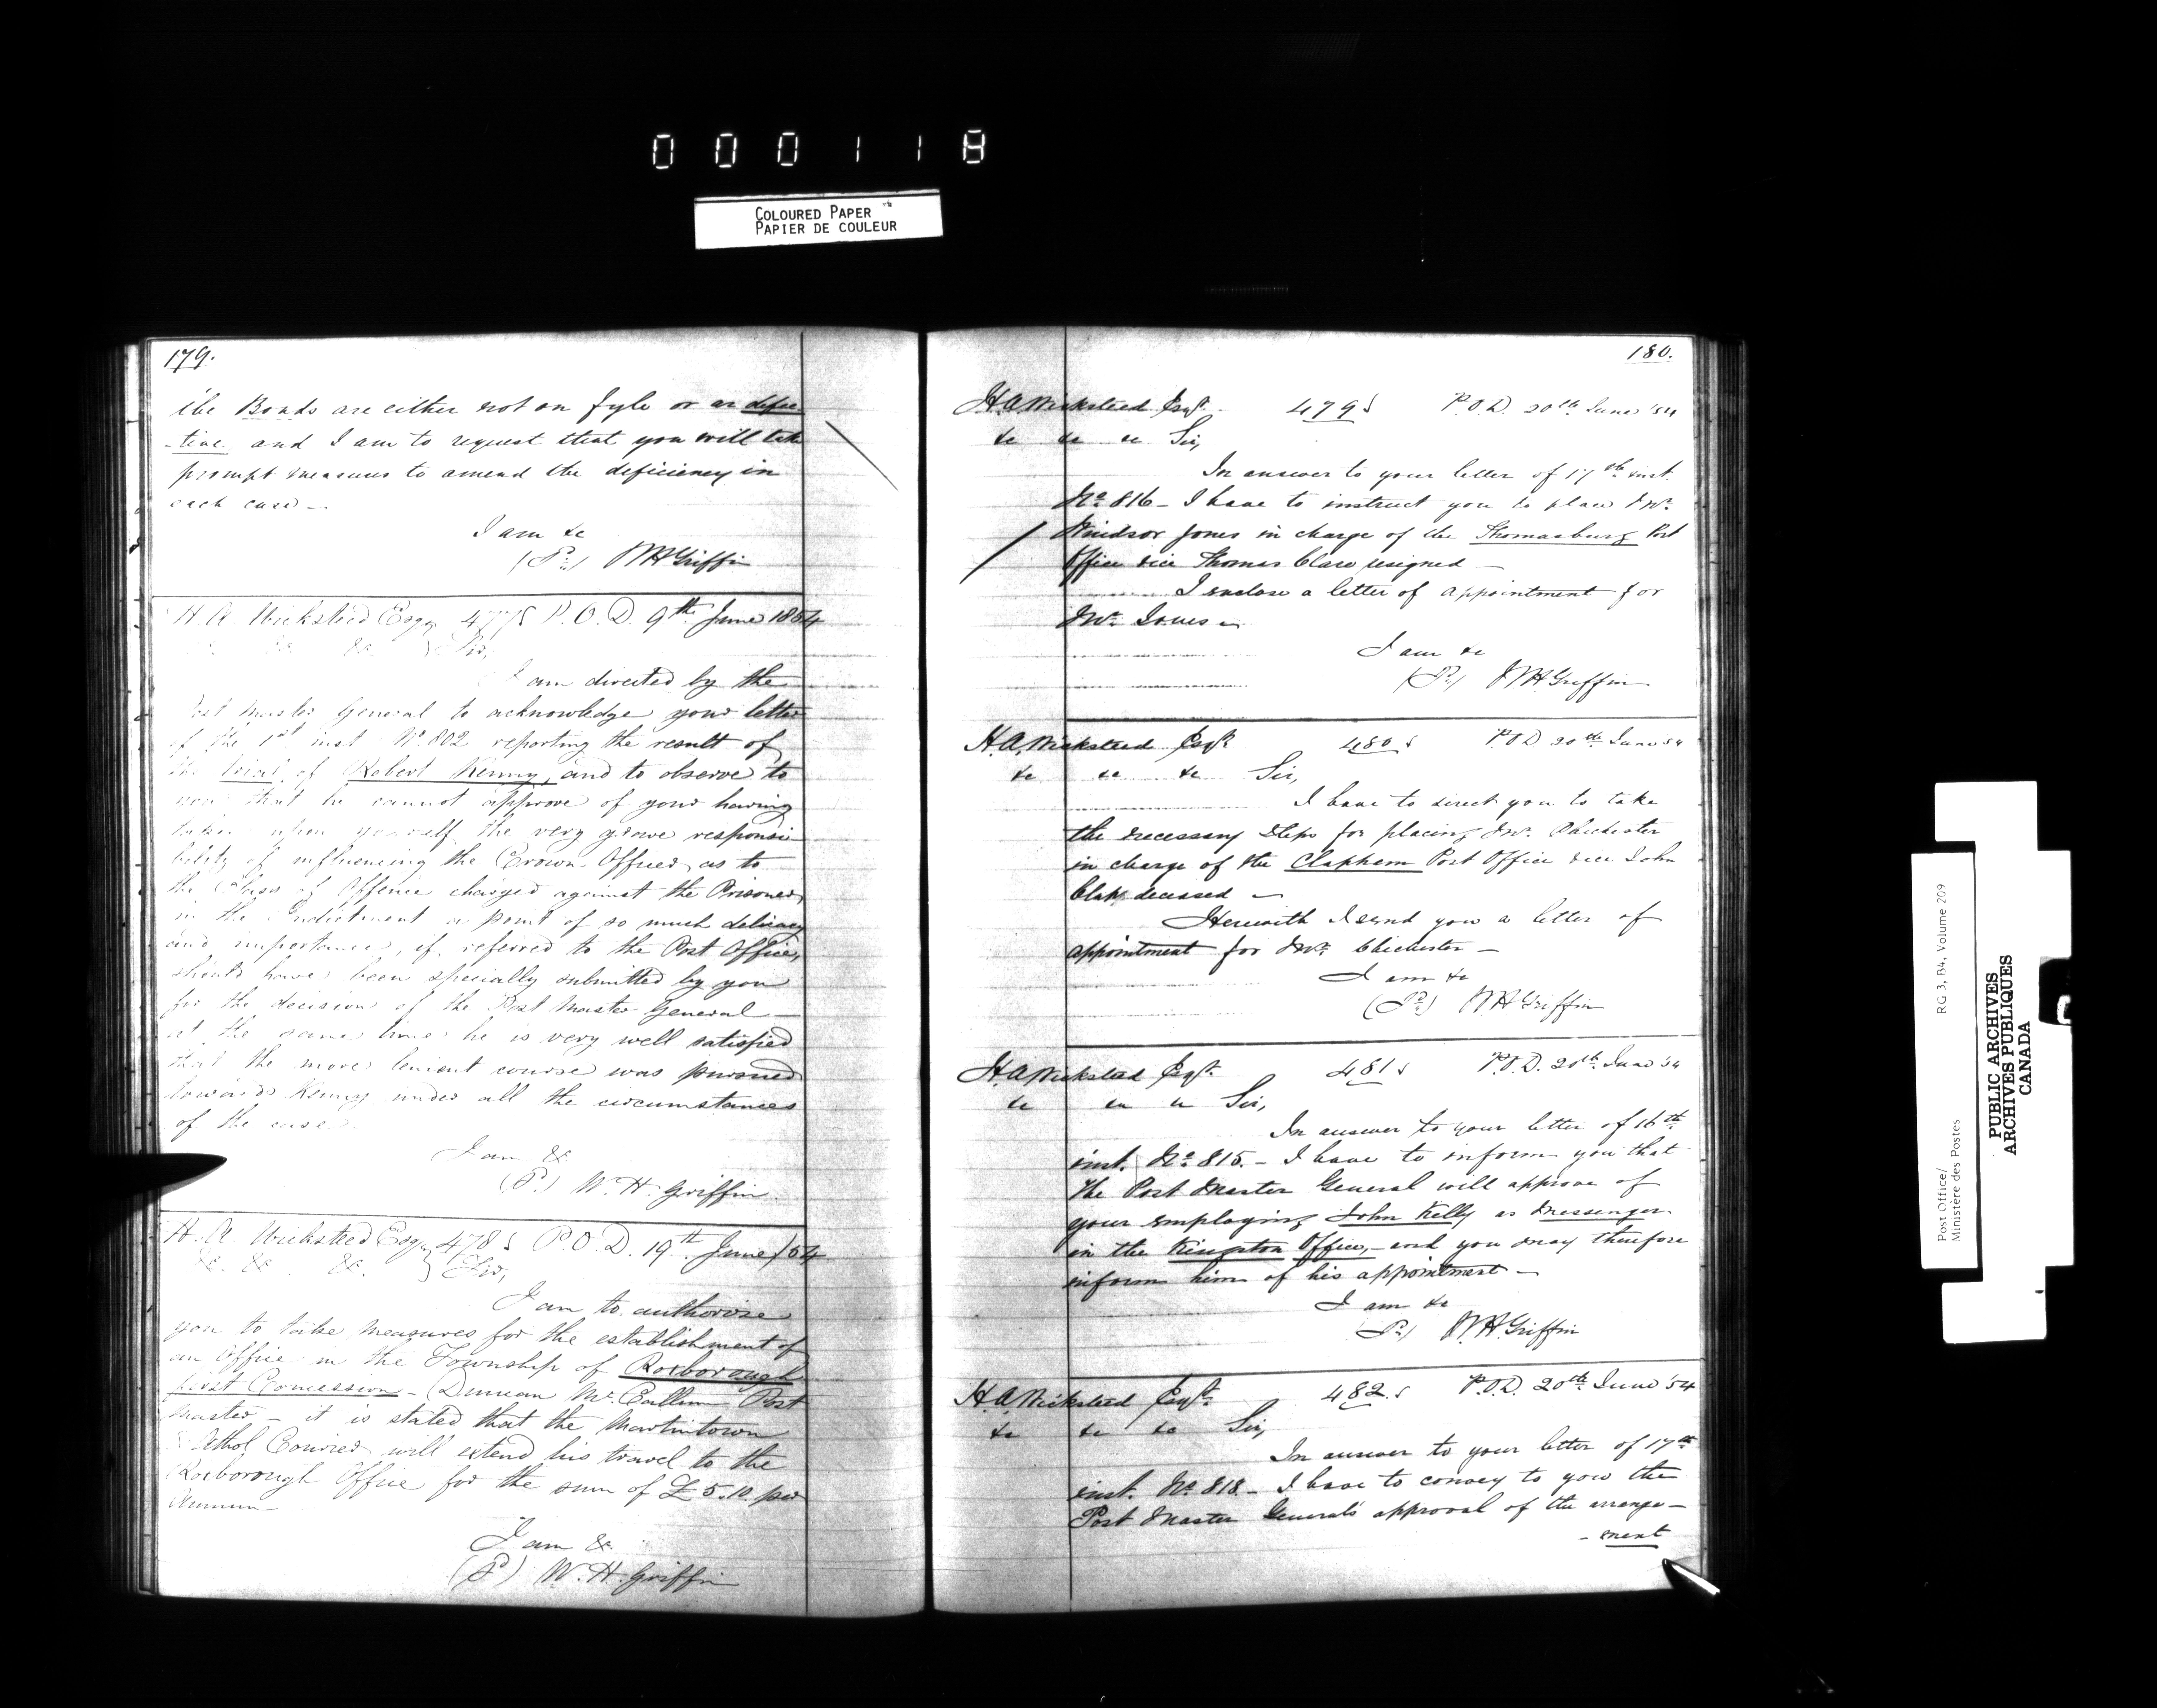 000118
COLOURED PAPER
PAPIER DE COULEUR
179.
the Bonds are either not on fyle or ar defec
-tive and I am to request that you will take
prompt measures to amend the deficiency in
each case —
I am &c
(Sd) W H Griffin
H. A. Wicksteed Esqr 477 S P. O. D. 9th June 1854
&c. &c. } Sir,
I am directed by the
Post Master General to acknowledge your letter
of the 1st inst No. 802 reporting the result of
the trial of Robert Kenny, and to observe to
you that he cannot approve of your having
taken upon yourself the very grave responsi
bility of influencing the Crown Officer as to
the Class of Offence charged against the Prisoner
in the Indictment a point of so much delicacy
and importance, if referred to the Post Office,
should have been specially submitted by you
for the decision of the Post Master General —
at the same time he is very well satisfied
that the more lenient course was pursued
towards Kenny under all the circumstances
of the case.
I am &c.
(Sd) W. H. Griffin
H. A. Wicksteed Esqr 478 S P. O. D. 19th June /54
&c. &c. &c. } Sir,
I am to authorise
you to take measures for the establishment of
an Office in the Township of Roxborough
first Concession — Duncan McCallum Post
Master — it is stated that the Martintown
& Athol Courier will extend his travel to the
Roxborough Office for the sum of £5.10. per
Annum
I am &c.
(Sd) W. H. Griffin
180.
H. A. Wicksteed Esqr. 479 S P. O. D. 20th June '54
&c &c &c Sir,
In answer to your letter of 17th inst.
No. 816 — I have to instruct you to place Mr.
Windsor Jones in charge of the Thomasburg Post
Office vice Thomas Clare resigned —
I enclose a letter of appointment for
Mr. Jones —
I am &c
(Sd) W H Griffin
H. A. Wicksteed Esqr. 480 S P. O. D. 20th June 54
&c &c &c Sir,
I have to direct you to take
the necessary steps for placing Mr. Chichester
in charge of the Clapham Post Office vice John
deceased —
Herewith I send you a letter of
appointment for Mr. Chichester —
I am &c
(Sd) W H Griffin
H. A. Wicksteed Esqr. 481 S P. O. D. 20th June '54
&c &c &c Sir,
In answer to your letter of 16th
inst. No. 815. — I have to inform you that
the Post Master General will approve of
your employing John Kelly as Messenger
in the Kingston Office, — and you may therefore
inform him of his appointment —
I am &c
(Sd) W H Griffin
H. A. Wicksteed Esqr. 482. S P. O. D. 20th June '54
&c &c &c Sir,
In answer to your letter of 17th
inst. No. 818 — I have to convey to you the
Post Master General's approval of the arrange-
- ment
Post Office/ RG 3, B4, Volume 209
Ministère des Postes
PUBLIC ARCHIVES
ARCHIVES PUBLIQUES
CANADA